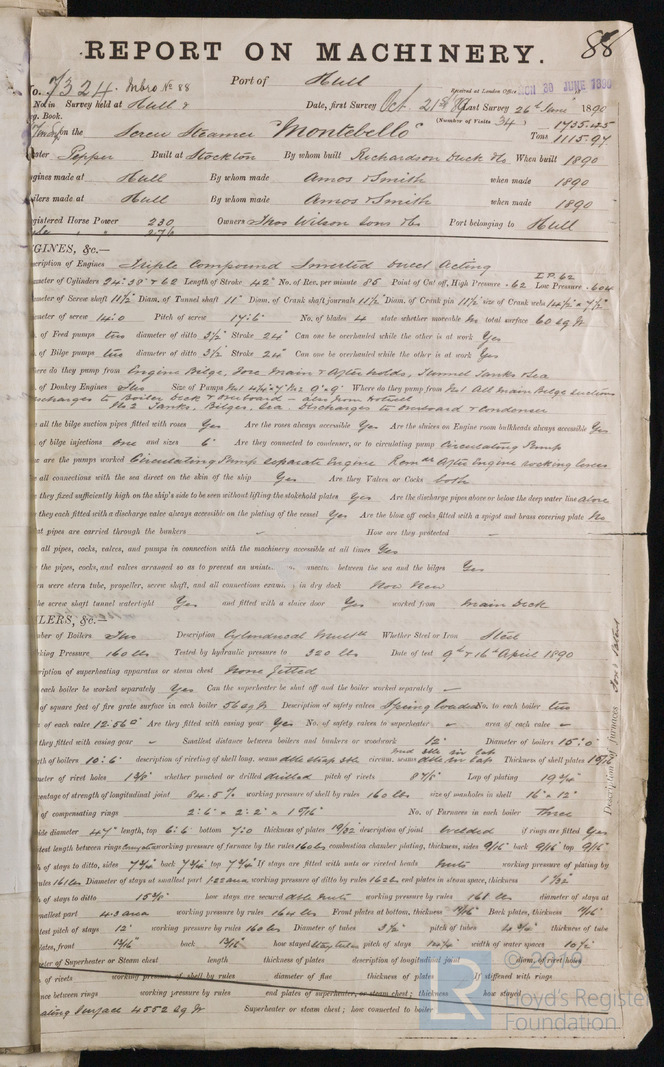 REPORT ON MACHINERY.
88
No. 7324. Port of Hull
Received at London Office MON 30 JUNE 1890
No. in Survey held at Hull & Date, first Survey Oct. 21st 89 Last Survey 26th June 1890
Reg. Book. (Number of Visits 34)
on the Screw Steamer "Montebello" Tons 1735.25 1115.97
Master Pepper Built at Stockton By whom built Richardson Duck & Co When built 1890
Engines made at Hull By whom made Amos & Smith when made 1890
Boilers made at Hull By whom made Amos & Smith when made 1890
Registered Horse Power 230 Owners Thos Wilson Sons & Co Port belonging to Hull
276
ENGINES, &c.—
Description of Engines Triple Compound Inverted Direct Acting
Diameter of Cylinders 24: 38 & 62 Length of Stroke 42" No. of Rev. per minute 85 Point of Cut off, High Pressure .62 I.P. 62 Low Pressure .604
Diameter of Screw shaft 11½ Diam. of Tunnel shaft 11" Diam. of Crank shaft journals 11½ Diam. of Crank pin 11½ size of Crank webs
Diameter of screw 14:0 Pitch of screw 17:6 No. of blades 4 state whether moveable No total surface 60 sq ft
No. of Feed pumps two diameter of ditto 3½ Stroke 24" Can one be overhauled while the other is at work Yes
No. of Bilge pumps two diameter of ditto 3½ Stroke 24" Can one be overhauled while the other is at work Yes
Where do they pump from Engine Bilge, Fore Main & After holds, Tunnel Tanks & Sea
No. of Donkey Engines Two Size of Pumps Where do they pump from No1 All Main Bilge suctions
discharges to Boiler Deck & Overboard – also from Hotwell
No 2 Tanks, Bilges, Sea. Discharges to Overboard & Condenser
all the bilge suction pipes fitted with roses Yes Are the roses always accessible Yes Are the sluices on Engine room bulkheads always accessible Yes
No. of bilge injections One and sizes 6" Are they connected to condenser, or to circulating pump Circulating Pump
How are the pumps worked Circulating Pump separate Engine Remdr After Engine rocking levers
all connections with the sea direct on the skin of the ship Yes Are they Valves or Cocks both
Are they fixed sufficiently high on the ship's side to be seen without lifting the stokehold plates Yes Are the discharge pipes above or below the deep water line above
Are they each fitted with a discharge valve always accessible on the plating of the vessel Yes Are the blow off cocks fitted with a spigot and brass covering plate No
What pipes are carried through the bunkers – How are they protected –
all pipes, cocks, valves, and pumps in connection with the machinery accessible at all times Yes
the pipes, cocks, and valves arranged so as to prevent an between the sea and the bilges Yes
When were stern tube, propeller, screw shaft, and all connections exam in dry dock Now New
the screw shaft tunnel watertight Yes and fitted with a sluice door Yes worked from Main Deck
BOILERS, &c.—
Number of Boilers Two Description Cylindrical Whether Steel or Iron Steel
Working Pressure 160 lbs Tested by hydraulic pressure to 320 lbs Date of test 9th & 16th April 1890
Description of superheating apparatus or steam chest None fitted
each boiler be worked separately Yes Can the superheater be shut off and the boiler worked separately –
No. of square feet of fire grate surface in each boiler 56 sq ft Description of safety valves Spring loaded No. to each boiler two
of each valve 12.56" Are they fitted with easing gear Yes No. of safety valves to superheater – area of each valve –
they fitted with easing gear – Smallest distance between boilers and bunkers or woodwork 12" Diameter of boilers 15:0"
Length of boilers 10:6" description of riveting of shell long. seams circum. seams Thickness of shell plates
Diameter of rivet holes whether punched or drilled drilled pitch of rivets Lap of plating
Percentage of strength of longitudinal joint 84.5 % working pressure of shell by rules 160 lbs size of manholes in shell 16" × 12"
of compensating rings No. of Furnaces in each boiler Three
Outside diameter 47" length, top 6:6 bottom 7:0 thickness of plates 19/32 description of joint Welded if rings are fitted Yes
Greatest length between rings working pressure of furnace by the rules 160 lbs combustion chamber plating, thickness, sides 9/16 back 9/16 top 9/16
of stays to ditto, sides back top If stays are fitted with nuts or riveted heads Nuts working pressure of plating by
rules 161 lbs Diameter of stays at smallest part working pressure of ditto by rules 162 lbs end plates in steam space, thickness
of stays to ditto how stays are secured dble nuts working pressure by rules 168 lbs diameter of stays at
smallest part working pressure by rules 164 lbs Front plates at bottom, thickness Back plates, thickness
Greatest pitch of stays 12" working pressure by rules 160 lbs Diameter of tubes 3½" pitch of tubes thickness of tube
plates, front back how stayed pitch of stays width of water spaces
Diameter of Superheater or Steam chest length thickness of plates description of longitudinal joint diam. of rivet holes
of rivets working pressure of shell by rules diameter of flue thickness of plates If stiffened with rings
Distance between rings working pressure by rules end plates of superheater, or steam chest; thickness how stayed
Heating Surface 4552 sq ft Superheater or steam chest; how connected to boiler
Description of Furnaces
© 2018
LR
Lloyd's Register
Foundation